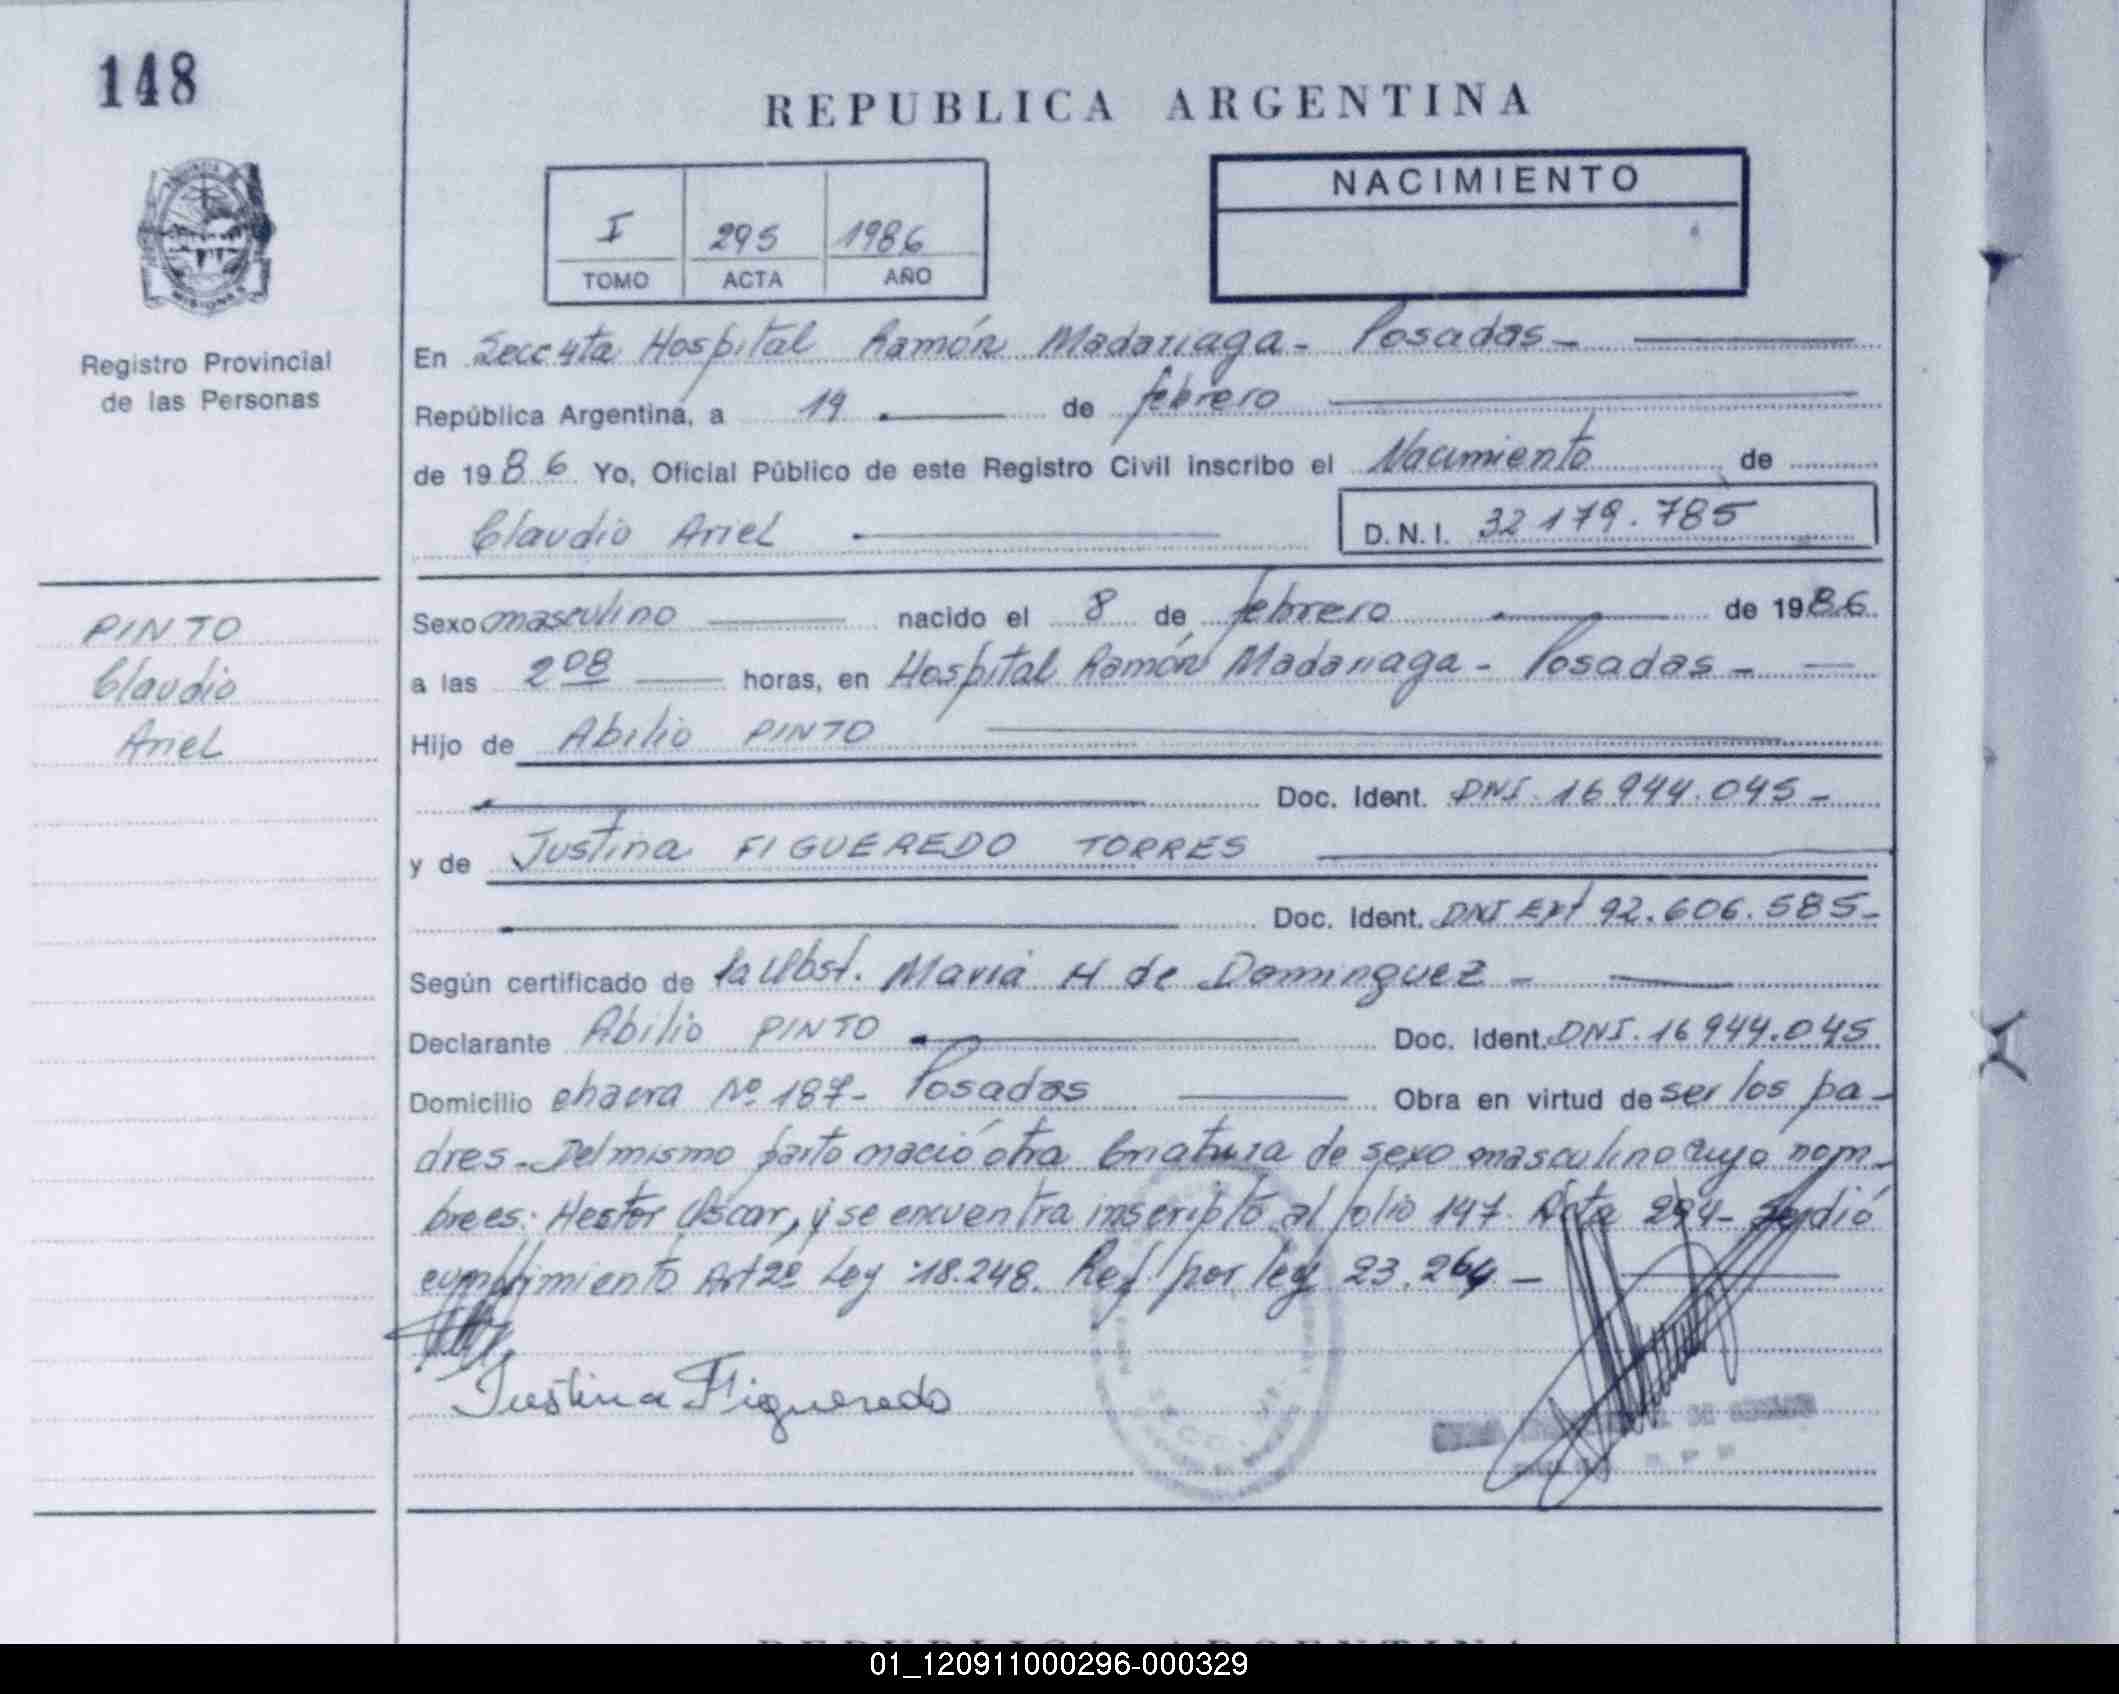 148
REPUBLICA ARGENTINA
NACIMIENTO
I 295 1986
TOMO ACTA AÑO
Registro Provincial
de las Personas
En Secc 4ta Hospital Ramón Madariaga - Posadas -
República Argentina, a 19 de febrero
de 1986 Yo, Oficial Público de este Registro Civil inscribo el Nacimiento de
Claudio Ariel
D.N.I. 32 179.785
PINTO
Claudio
Ariel
Sexo masculino nacido el 8 de febrero de 1986
a las 2 08 horas, en Hospital Ramón Madariaga - Posadas -
Hijo de Abilio PINTO
Doc. Ident. DNI. 16 944.045 -
y de Justina FIGUEREDO TORRES
Doc. Ident. DNI Ext 92.606.585 -
Según certificado de la Obst. Maria H de Dominguez -
Declarante Abilio PINTO Doc. Ident. DNI. 16 944.045
Domicilio chacra Nº 187 - Posadas Obra en virtud de ser los pa-
dres - Del mismo parto nació otra criatura de sexo masculino cuyo nom-
bre es: Hestor Oscar, y se encuentra inscripto al folio 147 Acta 294 - Se dió
cumplimiento Art 2º Ley 18.248. Ref. por ley 23.264 -
Justina Figueredo
01_120911000296-000329